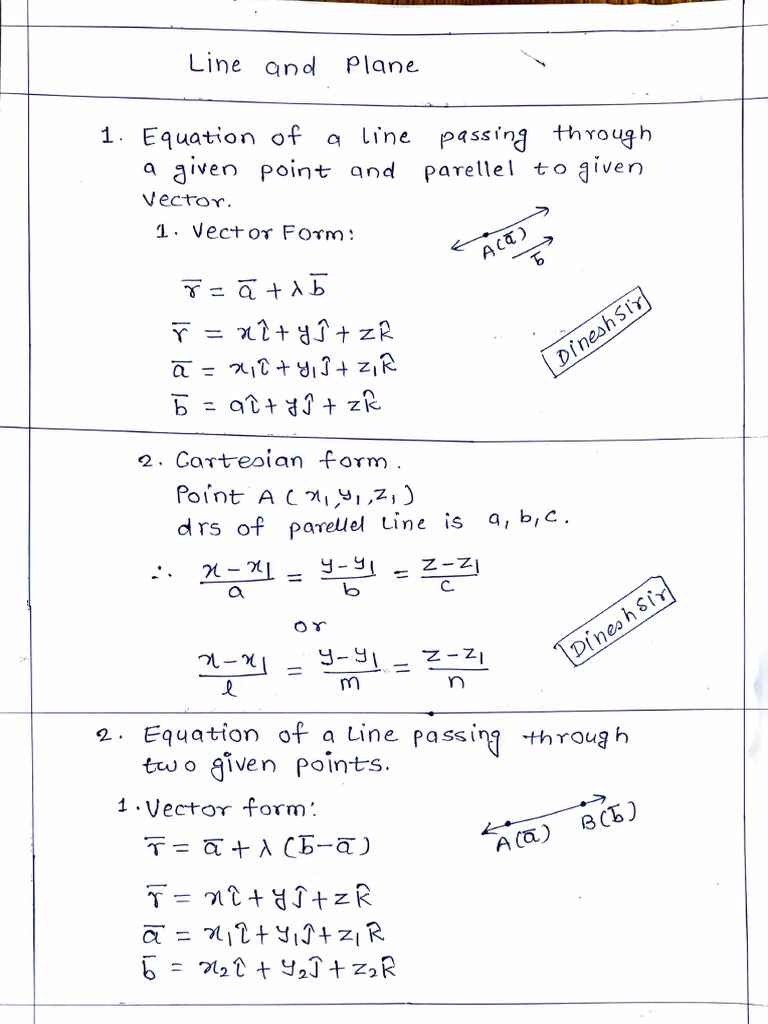 Line and Plane
1. Equation of a line passing through
a given point and parellel to given
vector.
1. Vector Form:
A(a̅)
b̅
r̅ = a̅ + λb̅
r̅ = xî + yĵ + zk̂
a̅ = x₁î + y₁ĵ + z₁k̂
b̅ = aî + yĵ + zk̂
Dinesh Sir
2. Cartesian form.
Point A (x₁, y₁, z₁)
drs of parellel line is a, b, c.
∴ (x – x₁)/a = (y – y₁)/b = (z – z₁)/c
or
(x – x₁)/l = (y – y₁)/m = (z – z₁)/n
Dinesh Sir
2. Equation of a Line passing through
two given points.
1. Vector form:
A(a̅) B(b̅)
r̅ = a̅ + λ (b̅ – a̅)
r̅ = xî + yĵ + zk̂
a̅ = x₁î + y₁ĵ + z₁k̂
b̅ = x₂î + y₂ĵ + z₂k̂